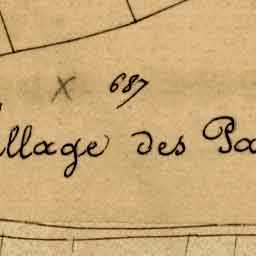 687
illage des Pa